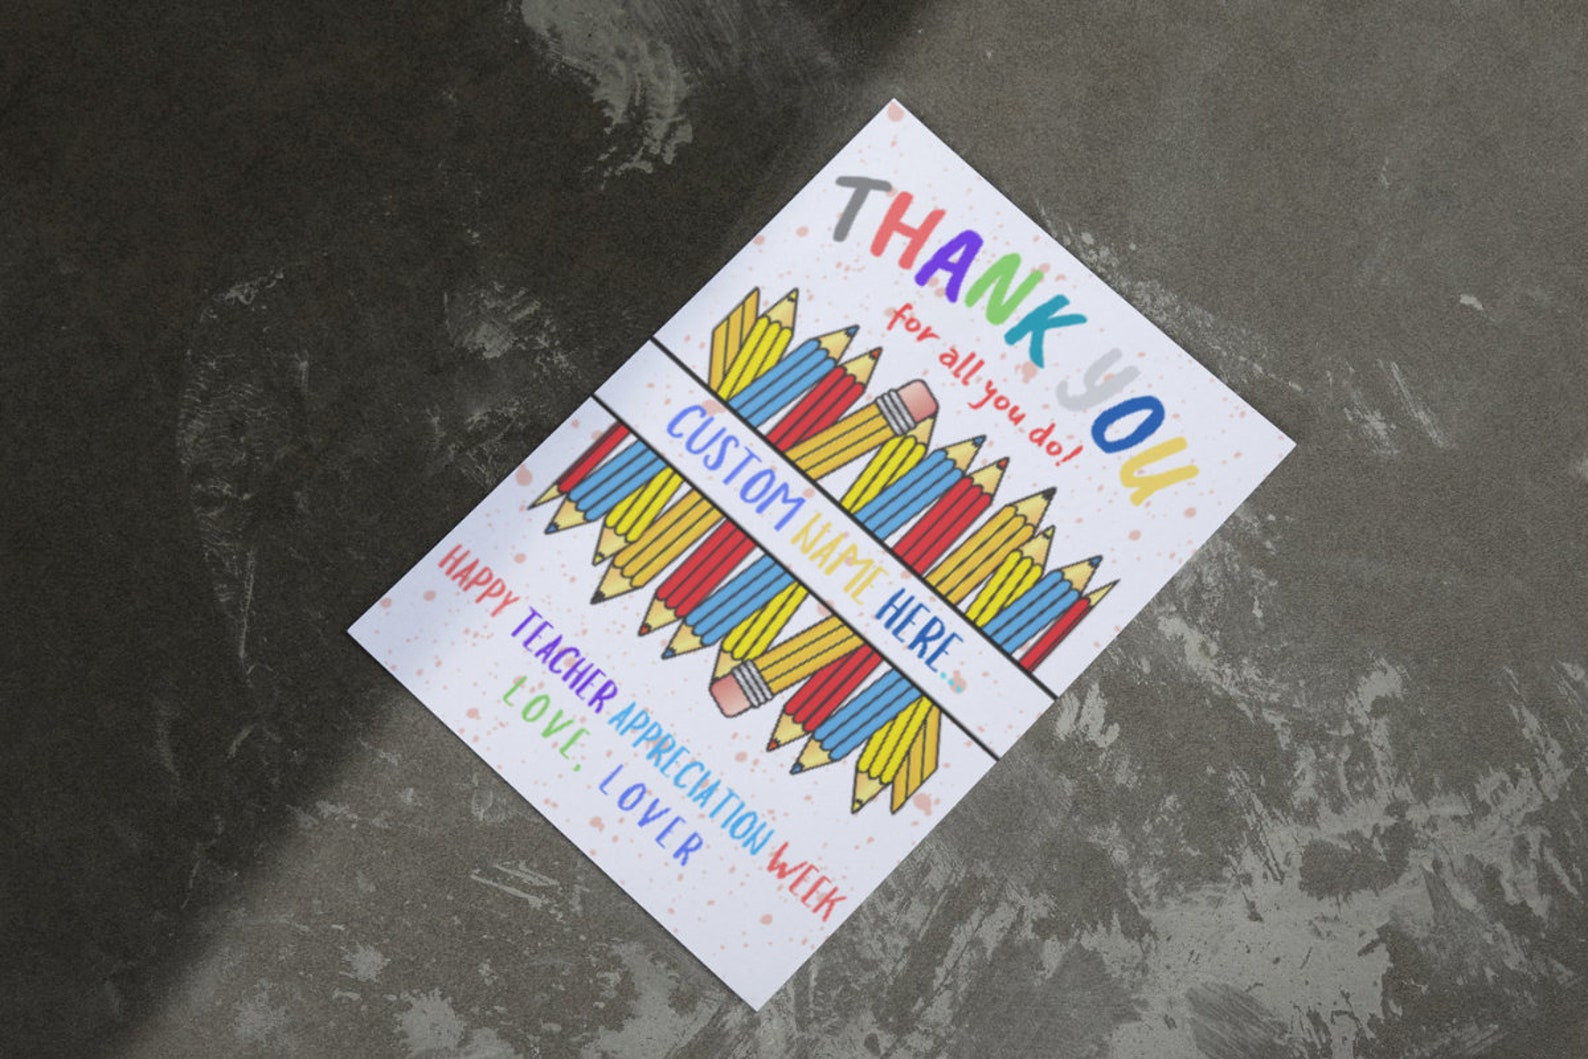 THANK YOU
for all you do!
CUSTOM NAME HERE...
HAPPY TEACHER APPRECIATION WEEK
LOVE, LOVER